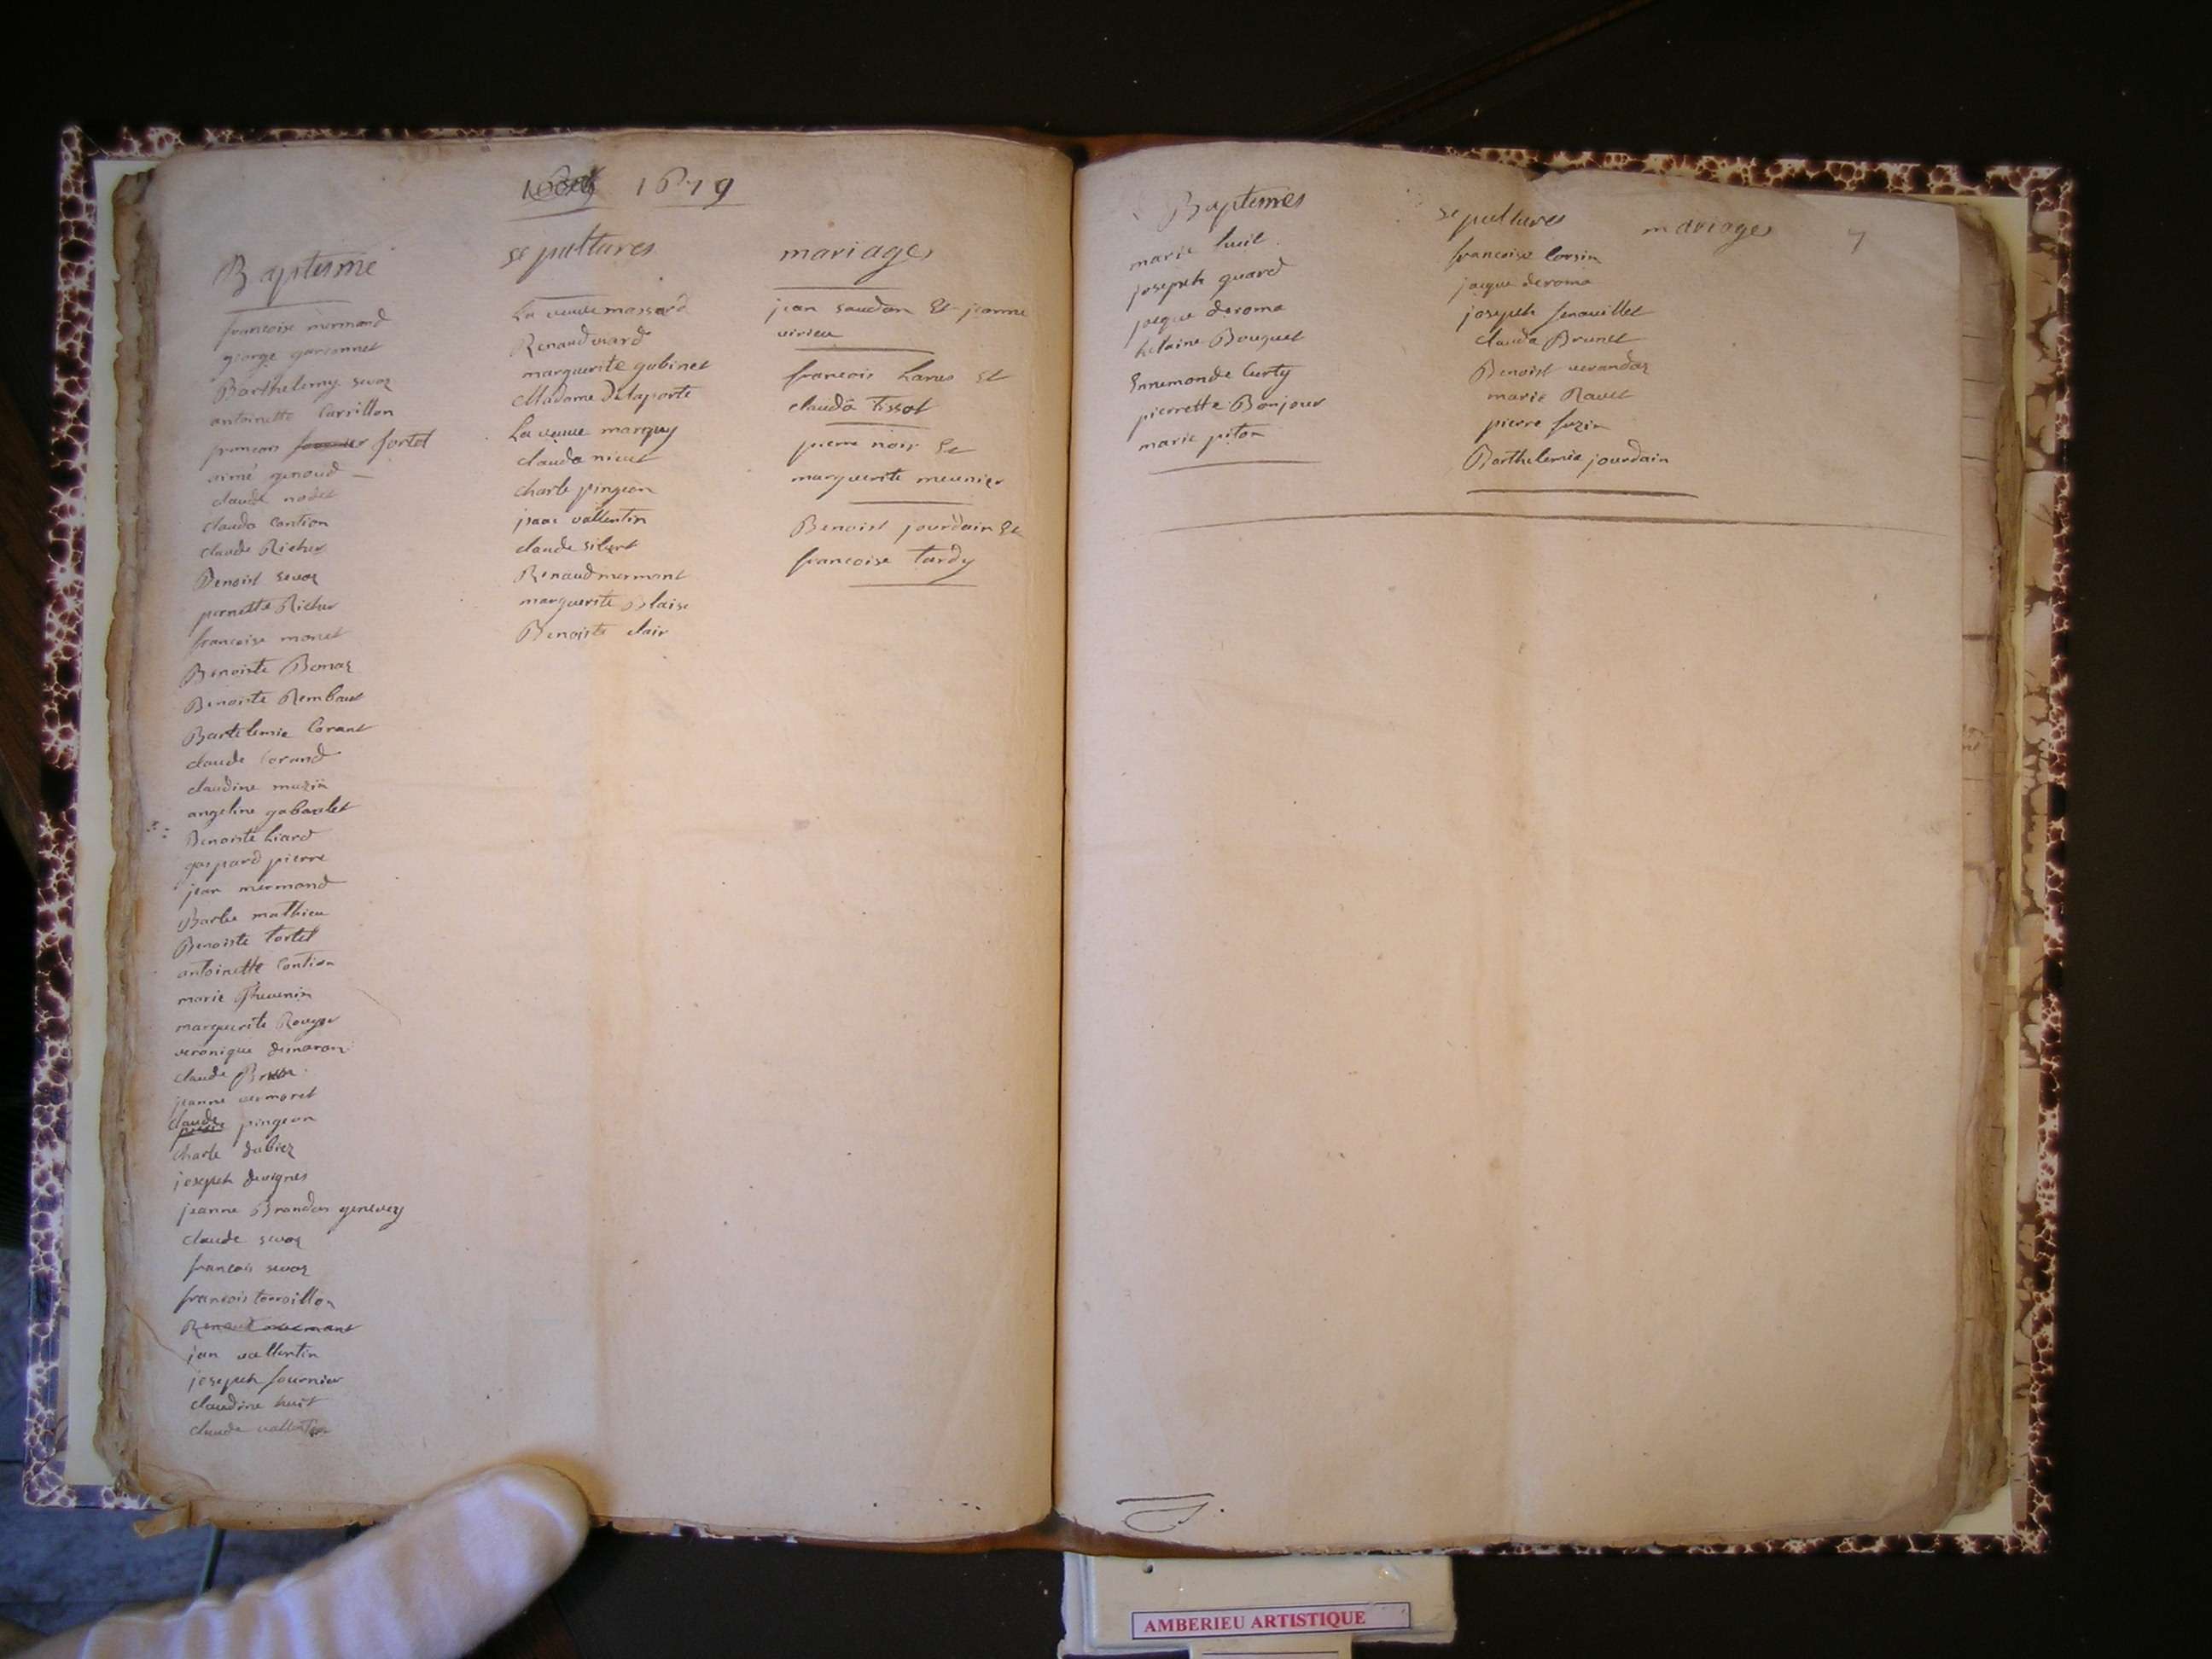 1679
Baptisme
francoise mermand
george garconnet
Barthelemy sevoz
antoinette Carrillon
francois fortet
aimé genoud
claude nodet
clauda Contion
claude Richer
Benoist sevoz
pernette Richer
francoise monet
Benoiste Bonnaz
Benoiste Rembaut
Bartelemie Corant
claude Corand
claudine muzin
angeline gabaulet
Benoiste Liard
gaspard pierre
jean mermand
Barbe mathieu
Benoiste tortel
antoinette Contion
marie Thevenin
marguerite Rouger
veronique
claude
jeanne vermoret
claude pingeon
Charle dubiez
joseph devignes
jeanne Brandon genevey
claude sevoz
francois sevoz
francois tornillon
Renaud mermant
jan vallentin
joseph fournier
claudine huit
claude vallentin
sepultures
La veuve massard
Renaud
marguerite gobinet
Madame Delaporte
La veuve marquy
clauda nicet
charle pingeon
jsaac vallentin
claude silent
Renaud mermant
marguerite Blaise
Benoiste clair
mariages
jean saudon Et jeanne
virieu
francois Lanes Et
clauda Tissot
pierre noir Et
marguerite meunier
Benoist jourdain Et
francoise tardy
Baptismes
marie huit
joseph guard
jacque deroma
helaine Bouquet
Ennemonde Curty
pierrette Bonjour
marie piton
sepultures
francoise Corsin
jacque deroma
joseph fenouillet
clauda Brunet
Benoist verandaz
marie Ravet
pierre fuzin
Barthelemie jourdain
mariages
7
AMBERIEU ARTISTIQUE